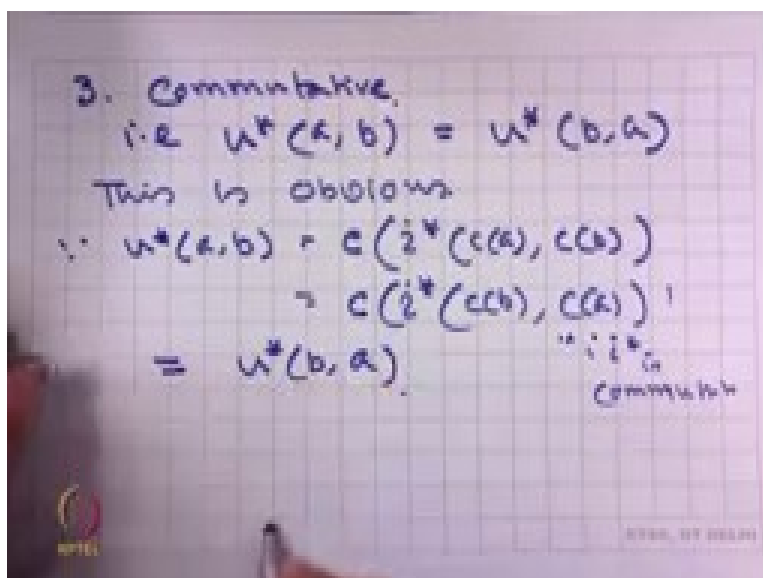 3. Commutative.
i.e u*(a, b) = u*(b, a)
This is obvious
∵ u*(a, b) = c(i*(c(a), c(b))
= c(i*(c(b), c(a))
∵ i* is
= u*(b, a).
NPTEL
ETSC, IIT DELHI